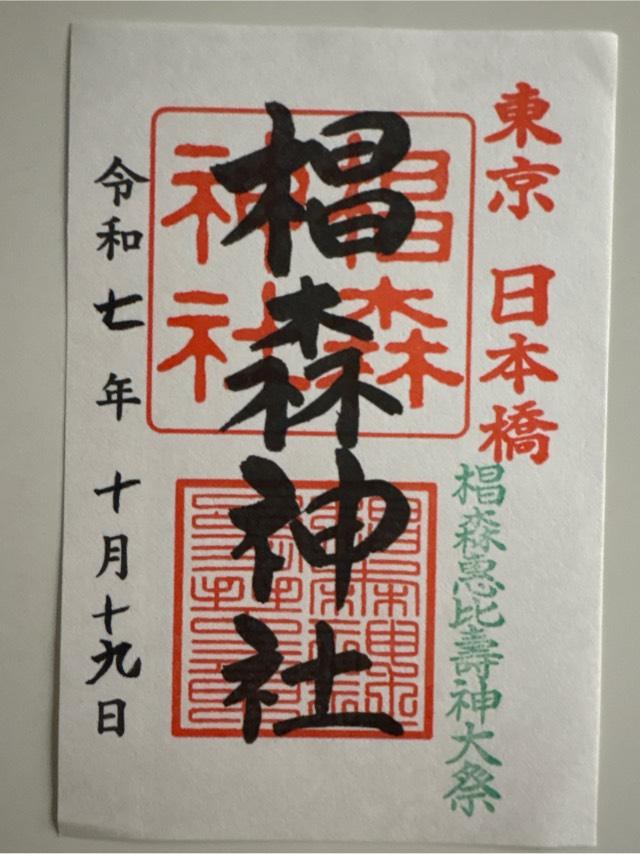 東京 日本橋
椙森惠比壽神大祭
椙森
神社
椙森神社
令和七年 十月十九日